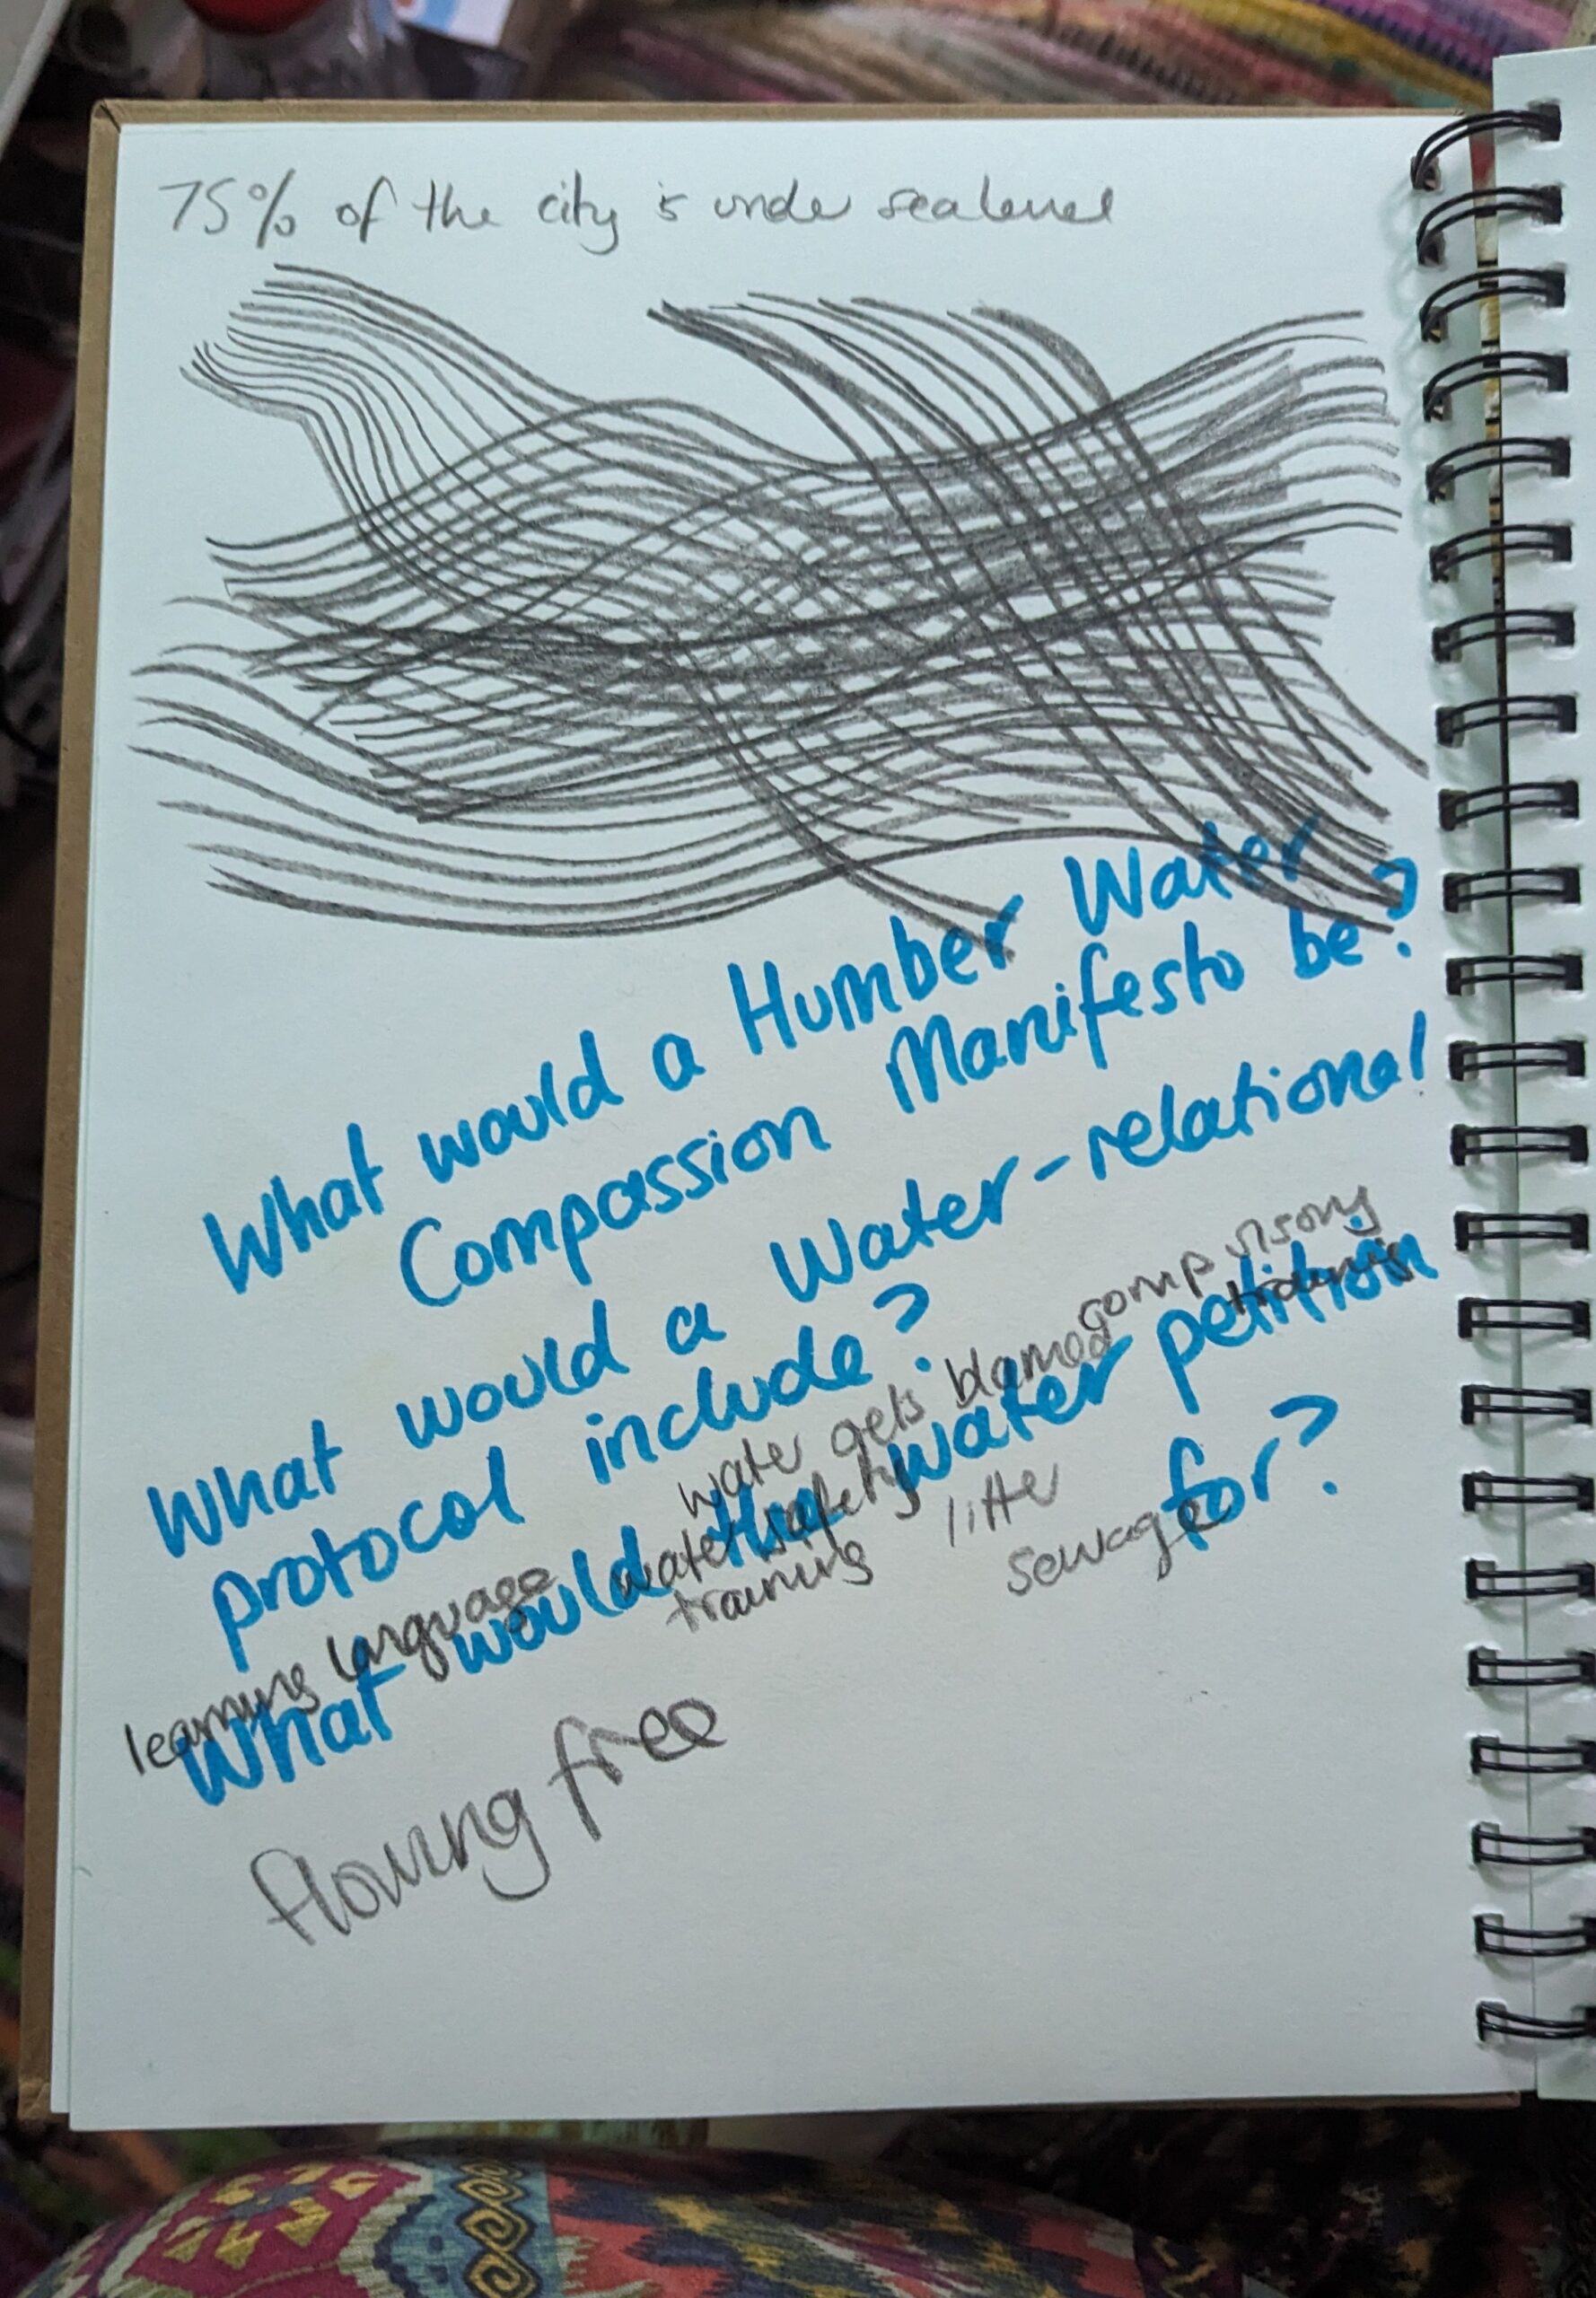 75% of the city is under sea level
What would a Humber Water
Compassion Manifesto be?
What would a Water-relational
protocol include?
comp
training
water gets blamed
What would the water petition
for?
water safety
training
litter
sewage
learning language
flowing free